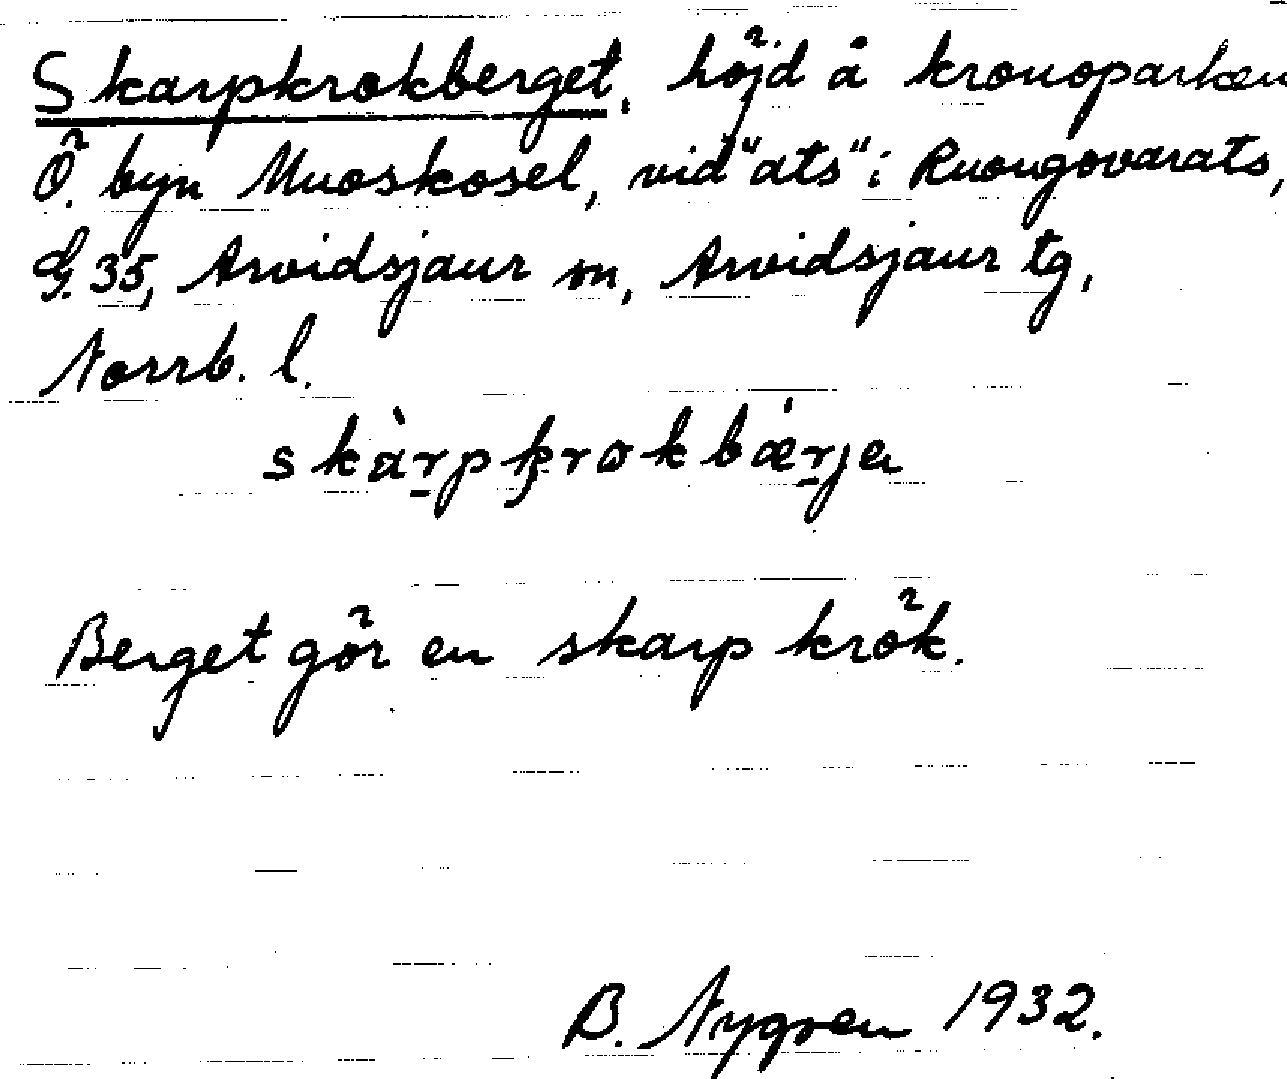 Skarpkrokberget, höjd å kronoparken
Ö. byn Muoskosel, vid "ats" i Ruongovarats,
G. 35, Arvidsjaur sn, Arvidsjaur tg,
Norrb. l.
skàrpkrokbǽrja
Berget gör en skarp krök.
B. Nygren 1932.